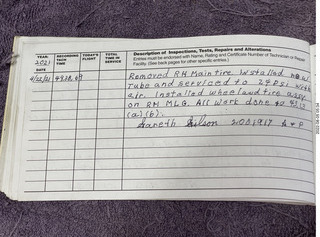 YEAR: 2021
RECORDING TACH TIME
TODAY'S FLIGHT
TOTAL TIME IN SERVICE
Description of Inspections, Tests, Repairs and Alterations
Entries must be endorsed with Name, Rating and Certificate Number of Technician or Repair Facility. (See back pages for other specific entries.)
DATE
Removed RH Main tire. Installed new
tube and serviced to 24 PSI with
air. Installed wheel and tire assy
on RH MLG. All work done to 43.13
(a)(b).
Gareth A+P